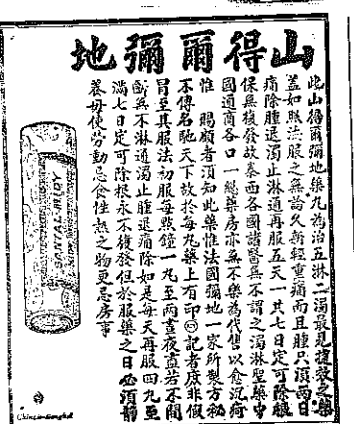 山得爾彌地
此山得爾彌地藥丸為治五淋二濁最見捷效之藥
蓋如照法服之無論久新輕重痛而且腫只須兩日
痛除腫退濁止淋通再服五天一共七日定可除根
保無復發故泰西各國諸醫無不謂之濁淋聖藥中
國通商各口一總藥房亦無不樂為代售以愈沉疴
惟賜顧者須知此藥惟法國彌地一家所製方秘
不傳名馳天下故於每九藥上有印 記者庶非假
冒至其服法初服每點鐘一丸至兩晝夜直若不間
斷無不淋通濁止腫退痛除如是每天再服四丸至
滿七日定可除根永不復發但於服藥之日必須靜
養毋使勞動忌食性熱之物更忌房事
SANTAL-MIDY